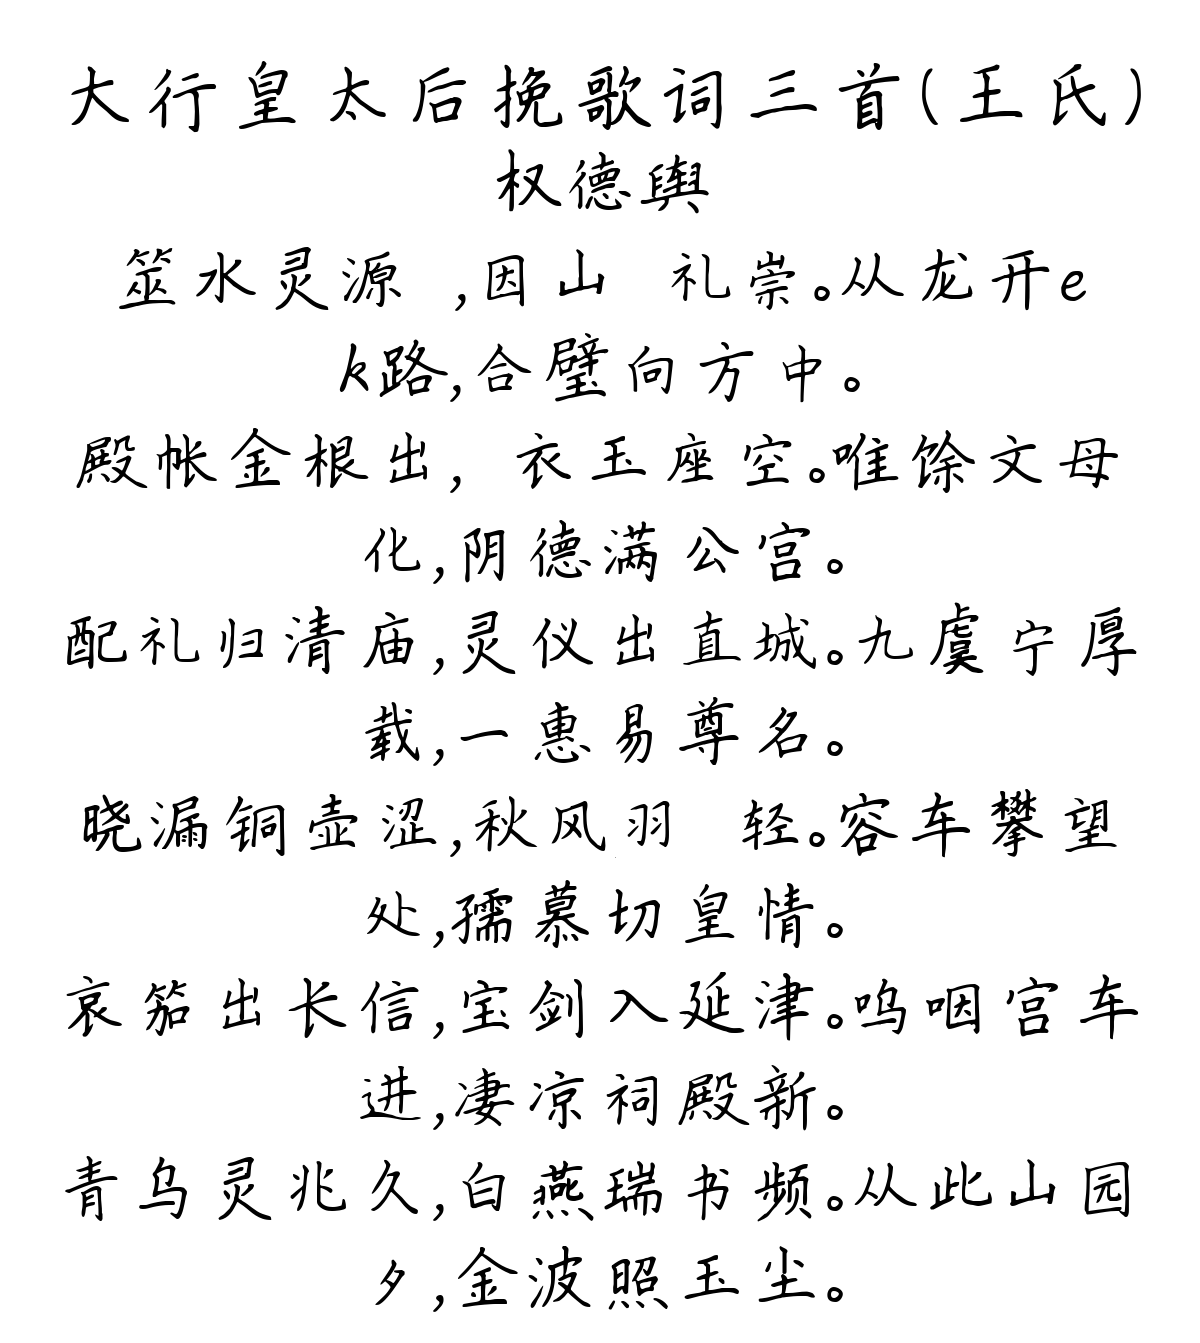 大行皇太后挽歌词三首(王氏)
权德舆
筮水灵源 ,因山 礼崇。从龙开e
k路,合璧向方中。
殿帐金根出, 衣玉座空。唯馀文母
化,阴德满公宫。
配礼归清庙,灵仪出直城。九虞宁厚
载,一惠易尊名。
晓漏铜壶涩,秋风羽 轻。容车攀望
处,孺慕切皇情。
哀笳出长信,宝剑入延津。呜咽宫车
进,凄凉祠殿新。
青乌灵兆久,白燕瑞书频。从此山园
夕,金波照玉尘。